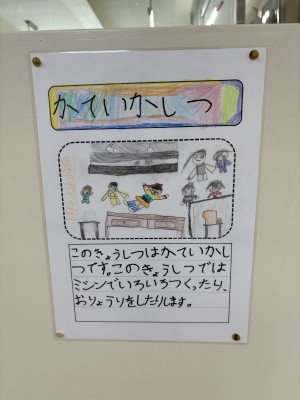 かていかしつ
このきょうしつはかていかし
つです。このきょうしつでは
ミシンでいろいろつくったり、
おりょうりをしたりします。